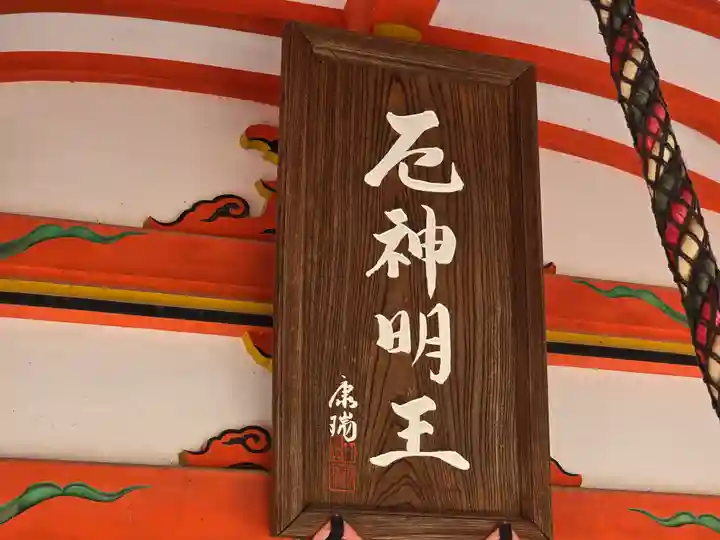 厄神明王
康瑞